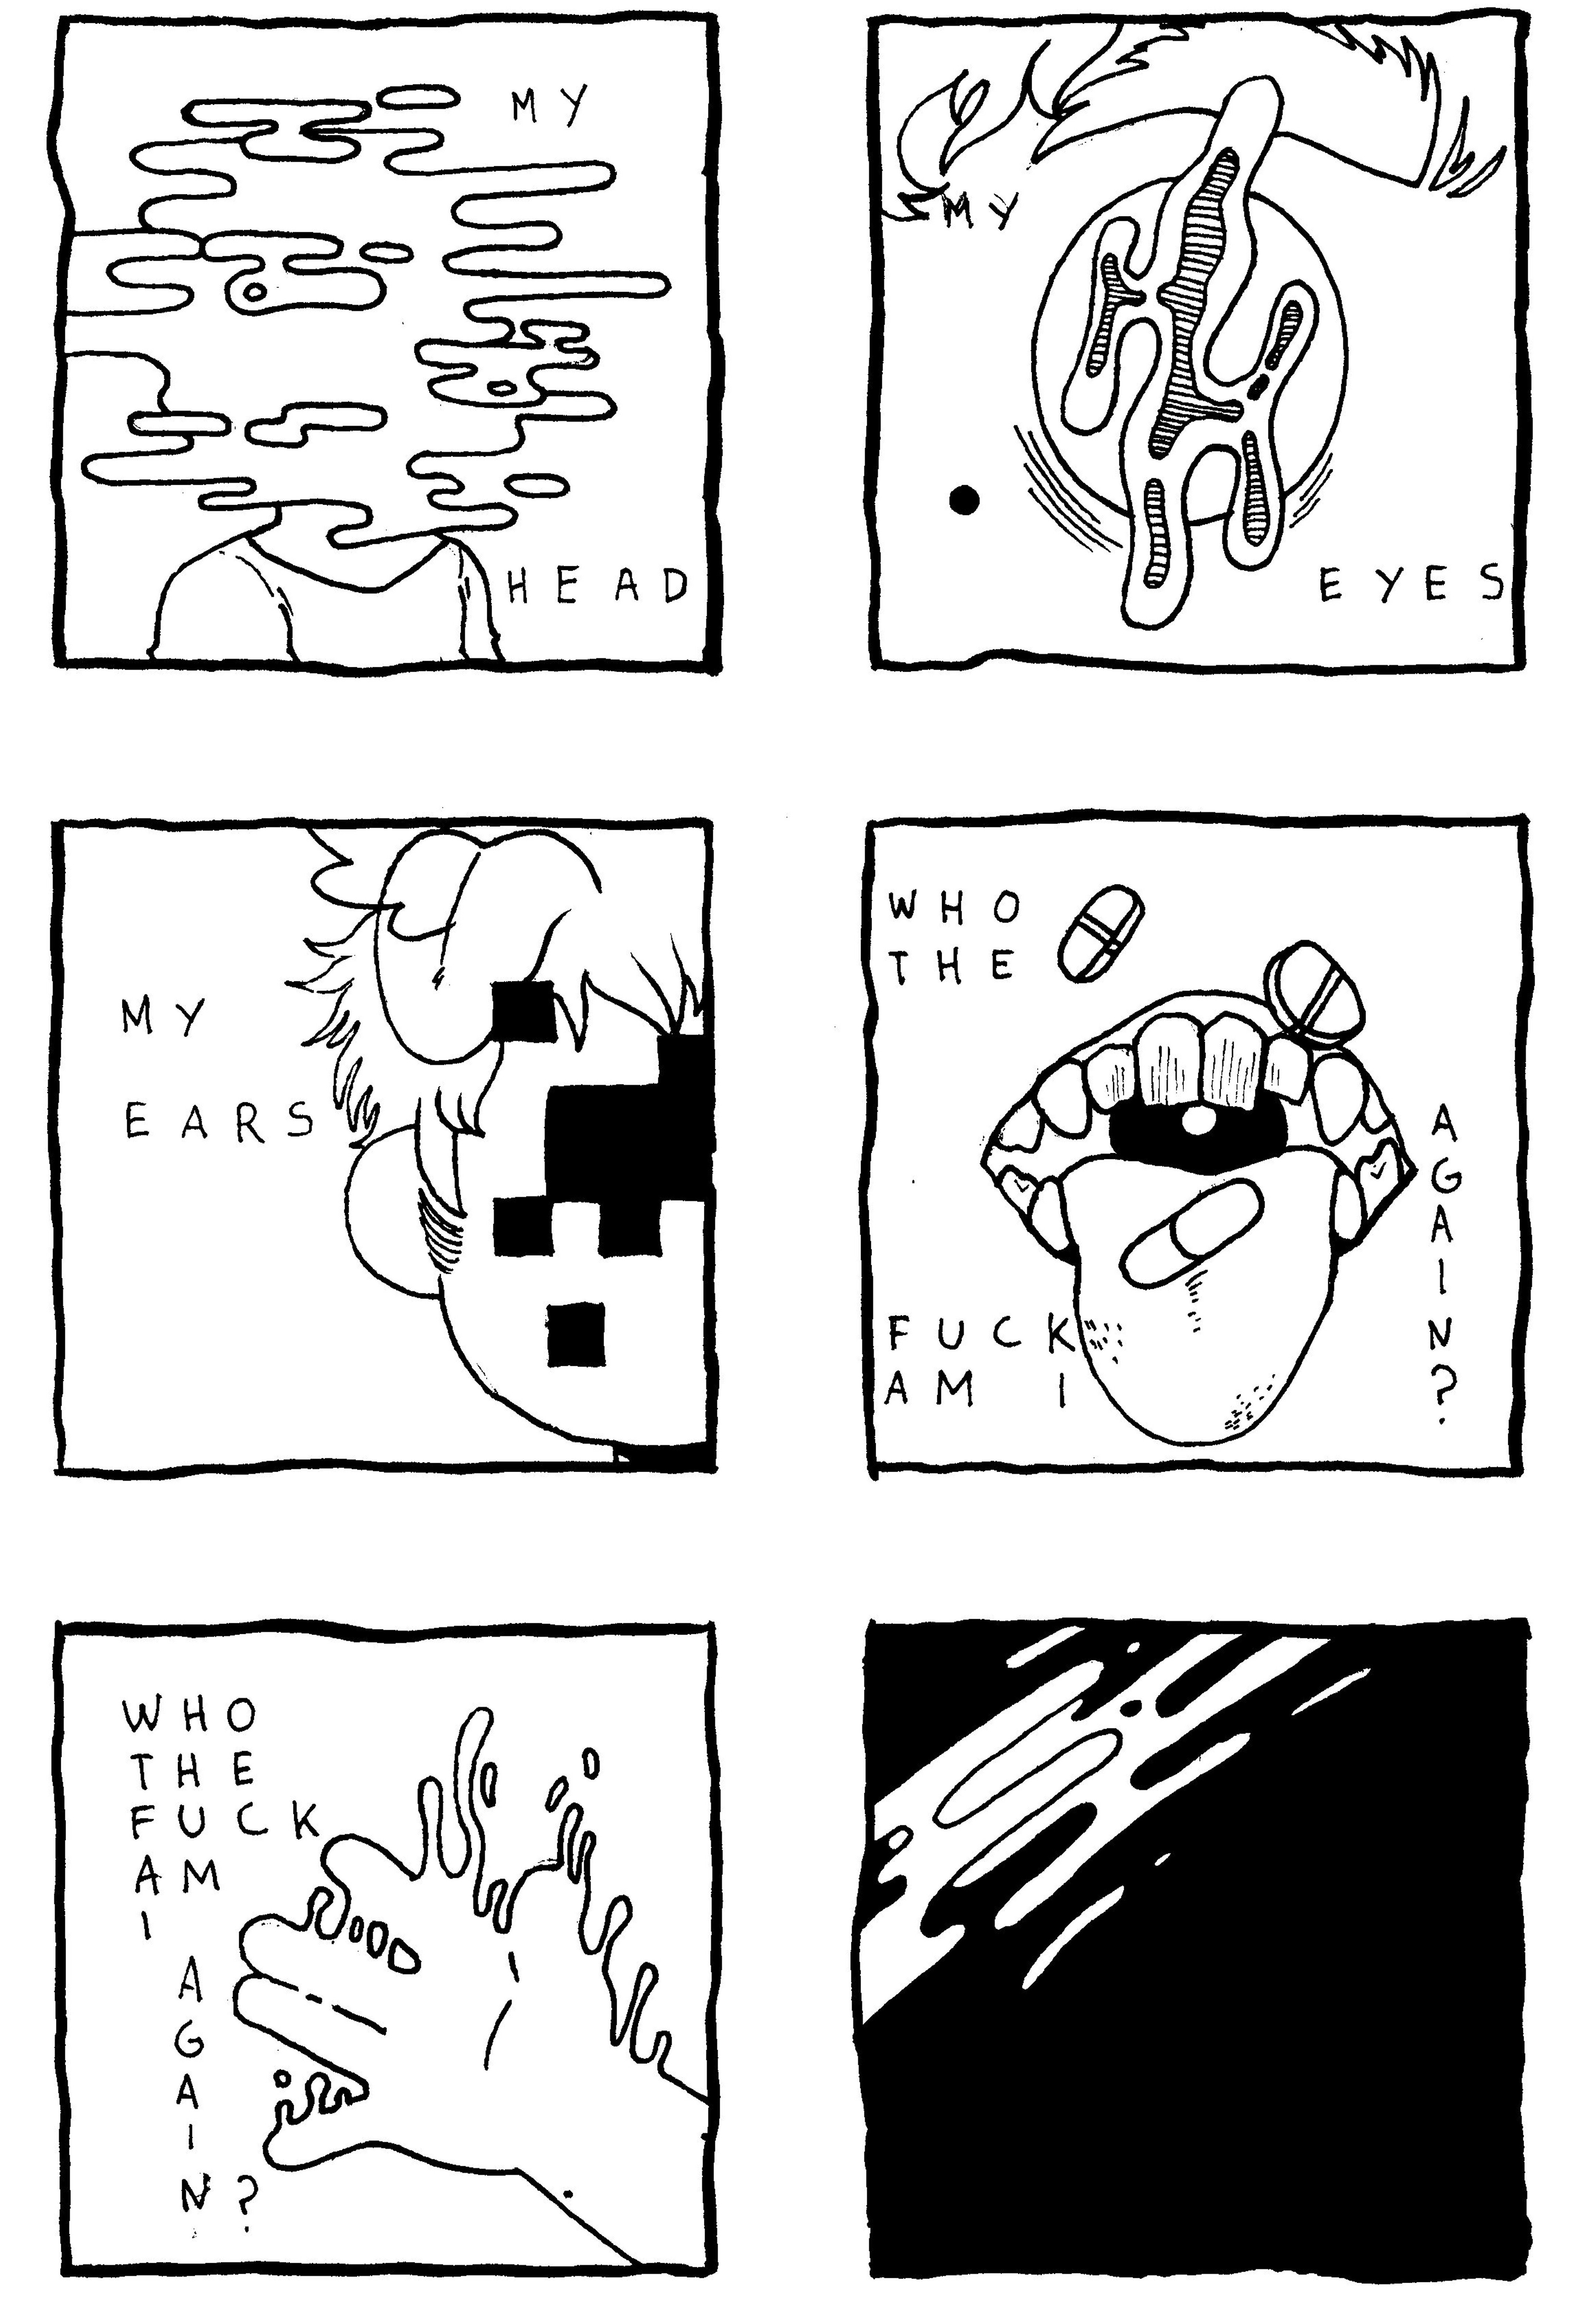 MY
HEAD
MY
EYES
MY
EARS
WHO
THE
FUCK
AM I
AGAIN?
WHO
THE
FUCK
AM
I
AGAIN?